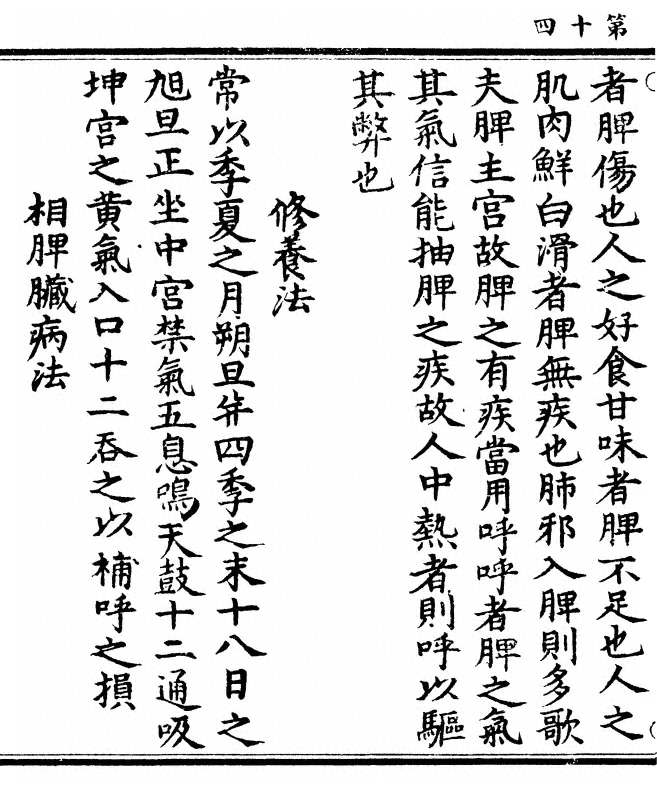 第十四
者脾傷也人之好食甘味者脾不足也人之
肌肉鮮白滑者脾無疾也肺邪入脾則多歌
夫脾主宮故脾之有疾當用呼呼者脾之氣
其氣信能抽脾之疾故人中熱者則呼以驅
其弊也
修養法
常以季夏之月朔旦并四季之末十八日之
旭旦正坐中宮禁氣五息鳴天鼓十二通吸
坤宮之黃氣入口十二吞之以補呼之損
相脾臟病法